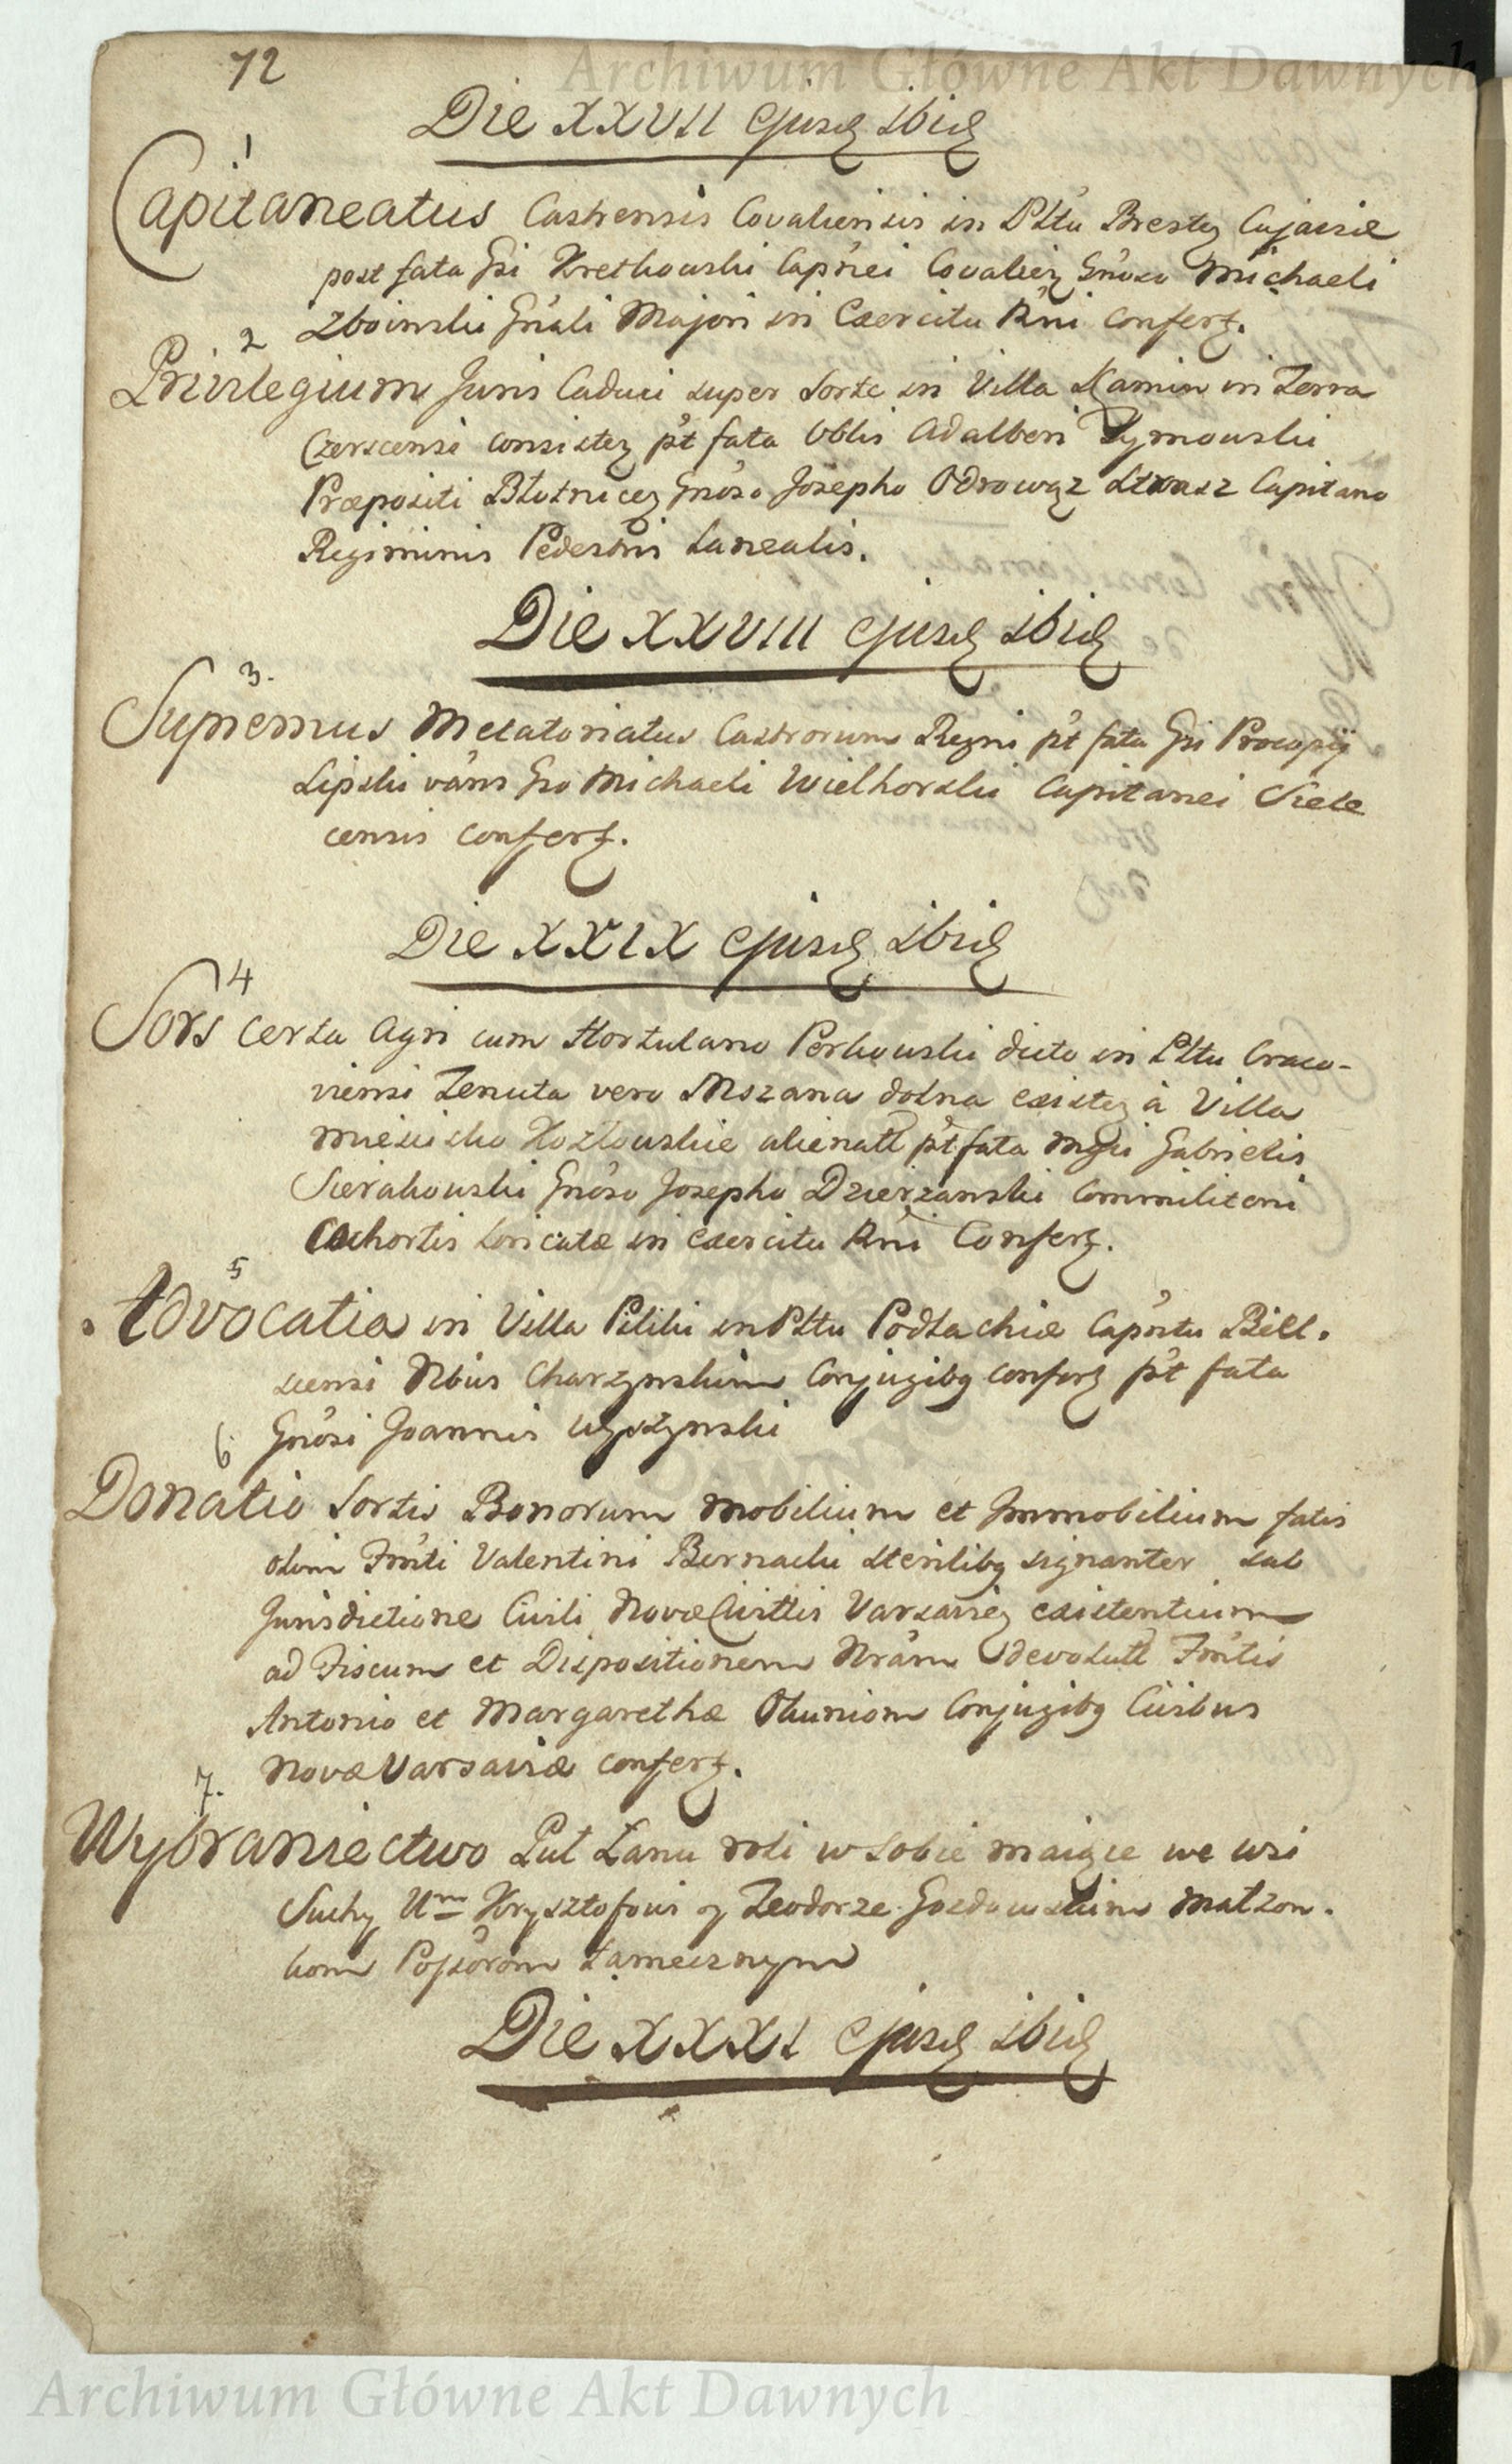 Archiwum Główne Akt Dawnych
72
Die XXVII ejusd ibid
1
Capitaneatus Castrensis Covaliensis in Plttu Bresteż Cujaviæ
post fata Gsi Krethowski Capnei Covalież Gnoso Michaeli
Zboinski Gnali Majori in Exercitu Rni conferż.
2
Privilegium Juris Caduci super Sorte in Villa Kamin in Terra
Czerscensi consisteż pt fata Vblis Adalberi Tymowski
Præpositi Błotniceż Gnoso Josepho Odrowąz Strasz Capitano
Regiminis Pedestris Lanealis.
Die XXVIII ejusd ibid
3.
Supremus Metatoriatus Castrorum Regni pt fata Gsi Procopij
Lipski vans Gso Michaeli Wielhorski Capitanei
censis conferż.
Die XXIX ejusd ibid
4
Sors certa Agri cum Hortulano Perkowski dicto in Plttu Craco-
viensi Tenuta vero Mszana dolna existeż à Villa
Kozłowskie alienatt pt fata Mgci Gabrielis
Sierakowski Gnoso Josepho Dzierzanski Commilitoni
Cohortis Loricatæ in Exercitu Rni Conferż.
5
Advocatia in Villa Piliki in Plttu Podlachiæ Caportu Biel.
scensi Nbus Charzynskim Conjugibq conferż pt fata
Gnosi Joannis Wyszynski
6.
Donatio Sortis Bonorum mobilium et Immobilium fatis
olim Fmti Valentini Bernacki sterilibq signanter sub
Jurisdictione Civili Novæ Civittis Varsavież existentium
ad Fiscum et Dispositionem Nram devolutt Fmtis
Antonio et Margarethæ Okuniom Conjugibq Civibus
Novæ Varsaviæ conferż.
7.
Wybraniectwo Puł Łanu roli w sobie maiące we wsi
Suchy Um Krysztofowi y Teodorze Gozdowskim Małżon.
kom Possorom tamecznym
Die XXXI ejusd ibid
Archiwum Główne Akt Dawnych